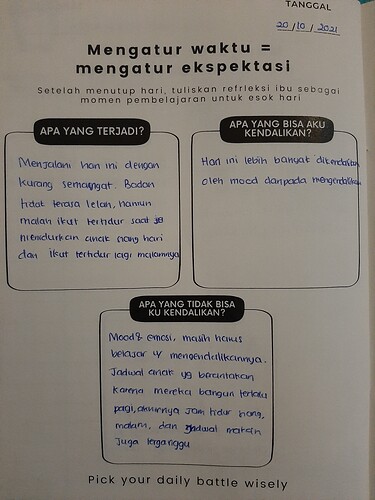 TANGGAL
20 / 10 / 2021
Mengatur waktu =
mengatur ekspektasi
Setelah menutup hari, tuliskan refrleksi ibu sebagai
momen pembelajaran untuk esok hari
APA YANG TERJADI?
Menjalani hari ini dengan
kurang semangat. Badan
tidak terasa lelah, namun
malah ikut tertidur saat
menidurkan anak siang hari
dan ikut tertidur lagi malamnya
APA YANG BISA AKU
KENDALIKAN?
Hari ini lebih banyak dikendalikan
oleh mood daripada mengendalikan
APA YANG TIDAK BISA
KU KENDALIKAN?
Mood & emosi, masih harus
belajar u/ mengendalikannya.
Jadwal anak yg berantakan
karena mereka bangun terlalu
pagi, akhirnya jam tidur siang,
malam, dan jadwal makan
juga terganggu
Pick your daily battle wisely